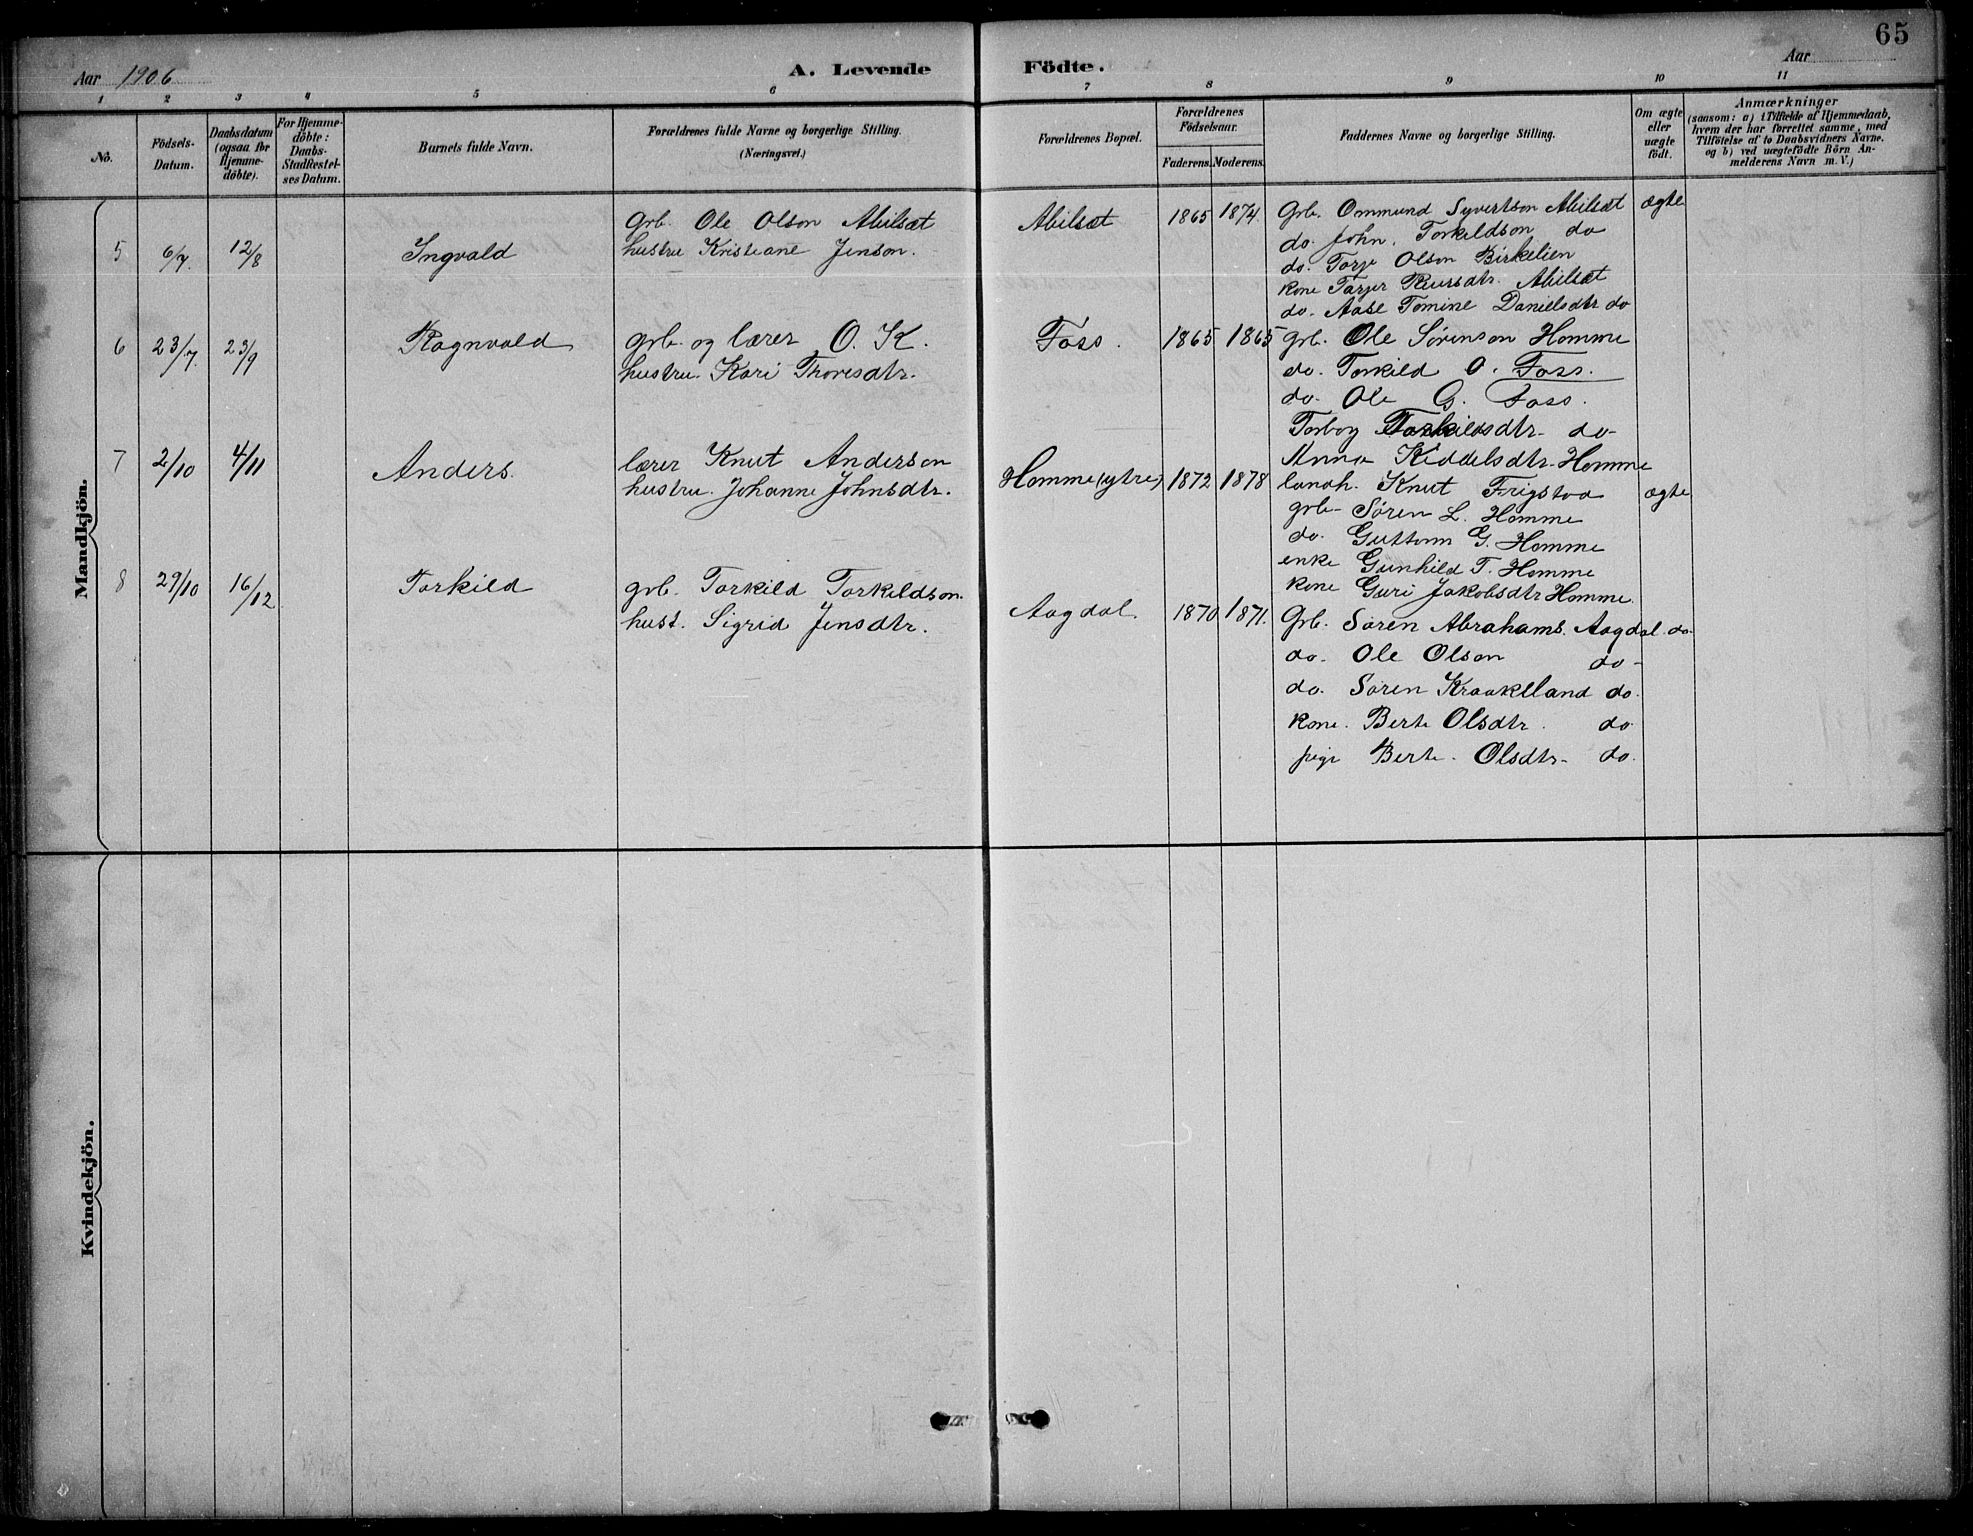 65
Aar 1906 A. Levende Födte. Aar
1 2 3 4 5 6 7 8 9 10 11
No.
Födsels-
Datum.
Daabsdatum
(ogsaa for
Hjemme-
döbte).
For Hjemme-
döbte:
Daabs-
Stadfestel-
ses Datum.
Barnets fulde Navn.
Forældrenes fulde Navne og borgerlige Stilling.
(Næringsvei.)
Forældrenes Bopæl.
Forældrenes
Födselsaar.
Faderens. Moderens.
Faddernes Navne og borgerlige Stilling.
Om ægte
eller
uægte
födt.
Anmærkninger
(saasom: a) i Tilfælde af Hjemmedaab,
hvem der har forrettet samme, med
Tilföielse af to Daabsvidners Navne.
og b) ved uægtefödte Börn An-
melderens Navn m. V.)
Mandkjön.
5 6/7. 12/8 Ingvald
grb. Ole Olson Abilsæt
hustru Kristiane Jenson.
Abilsæt 1865 1874.
Grb. Ommund Syvertson Abilsæt ægte
do. John. Torkildson do
do. Torje Olson Birkelien
kone Tarjer Abilsæt
do. Aase Tomine Danielsdtr do
6 23/7. 23/9 Ragnvald
grb. og lærer O. K.
hustru. Kari Thoresdtr.
Foss. 1865 1865
grb. Ole Sørenson Homme
do. Torkild O. Foss.
do. Ole G. Foss.
Torbog Torkildsdtr. do-
Anna Kiddelsdtr. Homme
7 2/10 4/11 Anders.
lærer Knut Anderson
hustru. Johanne Johnsdtr.
Homme (ytre) 1872 1878
landh. Knut Frigstad ægte
grb- Søren L. Homme
do. Guttorm G. Homme
enke Gunhild T. Homme
kone Guri Jakobsdtr Homme.
8 29/10 16/12 Torkild
grb. Torkild Torkildson.
hust. Sigrid Jensdtr.
Aagdal. 1870 1871.
Grb. Søren Abrahams. Aagdal. do.
do. Ole Olson do-
do. Søren Kraakelland do.
kone. Berte Olsdtr. do.
pige Berte. Olsdtr- do.
Kvindekjön.